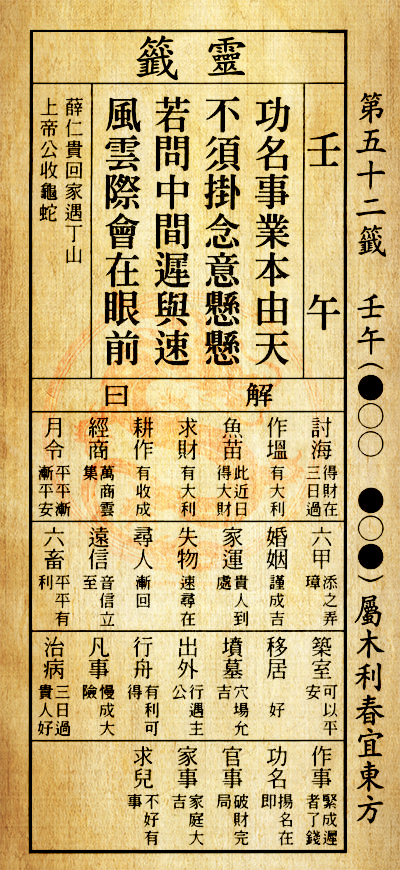 第五十二籤 壬午(●○○ ●○●)屬木利春宜東方
靈籤
壬午
功名事業本由天
不須掛念意懸懸
若問中間遲與速
風雲際會在眼前
薛仁貴回家遇丁山
上帝公收龜蛇
解曰
討海 得財在三日過
作塭 有大利
魚苗 此近日得大財
求財 有大利
耕作 有收成
經商 萬商雲集
月令 平平漸漸平安
六甲 添之弄璋
婚姻 謹成吉
家運 貴人到處
失物 速尋在
尋人 漸回
遠信 音信立至
六畜 平平有利
築室 可以平安
移居 好
墳墓 穴場允吉
出外 行遇主公
行舟 有利可得
凡事 慢成大險
治病 三日過貴人好
作事 緊成遲者了錢
功名 揚名在即
官事 破財完局
家事 家庭大吉
求兒 不好有事